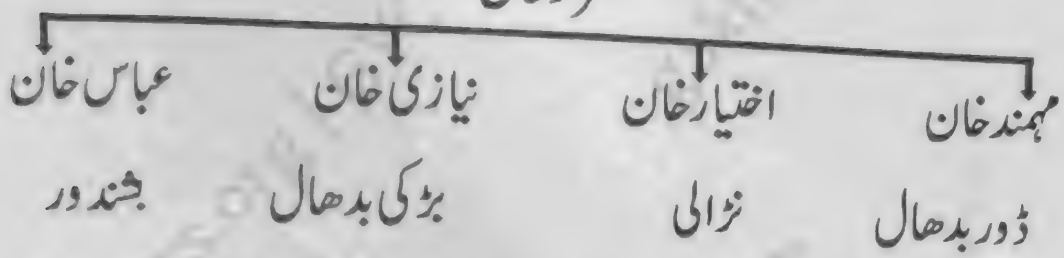 مہمند خان اختیار خان نیازی خان عباس خان
ڈور بدھال نڑالی بڑکی بدھال بشندور